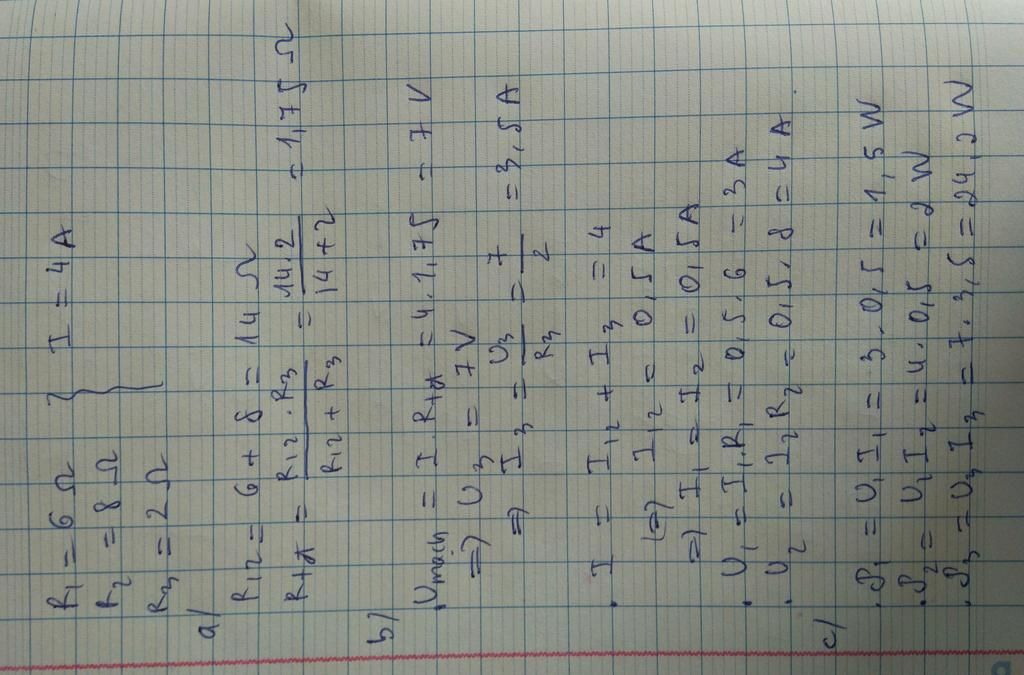 R₁ = 6 Ω
R₂ = 8 Ω } I = 4A
R₃ = 2 Ω
a/
R₁₂ = 6 + 8 = 14 Ω
Rtđ = R₁₂ . R₃ / R₁₂ + R₃ = 14.2 / 14 + 2 = 1,75 Ω
b/
. Umạch = I . Rtđ = 4.1,75 = 7 V
=> U₃ = 7V
=> I₃ = U₃ / R₃ = 7 / 2 = 3,5 A
. I = I₁₂ + I₃ = 4
(=) I₁₂ = 0,5 A
=> I₁ = I₂ = 0,5 A
. U₁ = I₁.R₁ = 0,5.6 = 3 A
. U₂ = I₂R₂ = 0,5.8 = 4 A
c/
. P₁ = U₁I₁ = 3.0,5 = 1,5 W
. P₂ = U₂I₂ = 4.0,5 = 2 W
. P₃ = U₃I₃ = 7.3,5 = 24,5 W